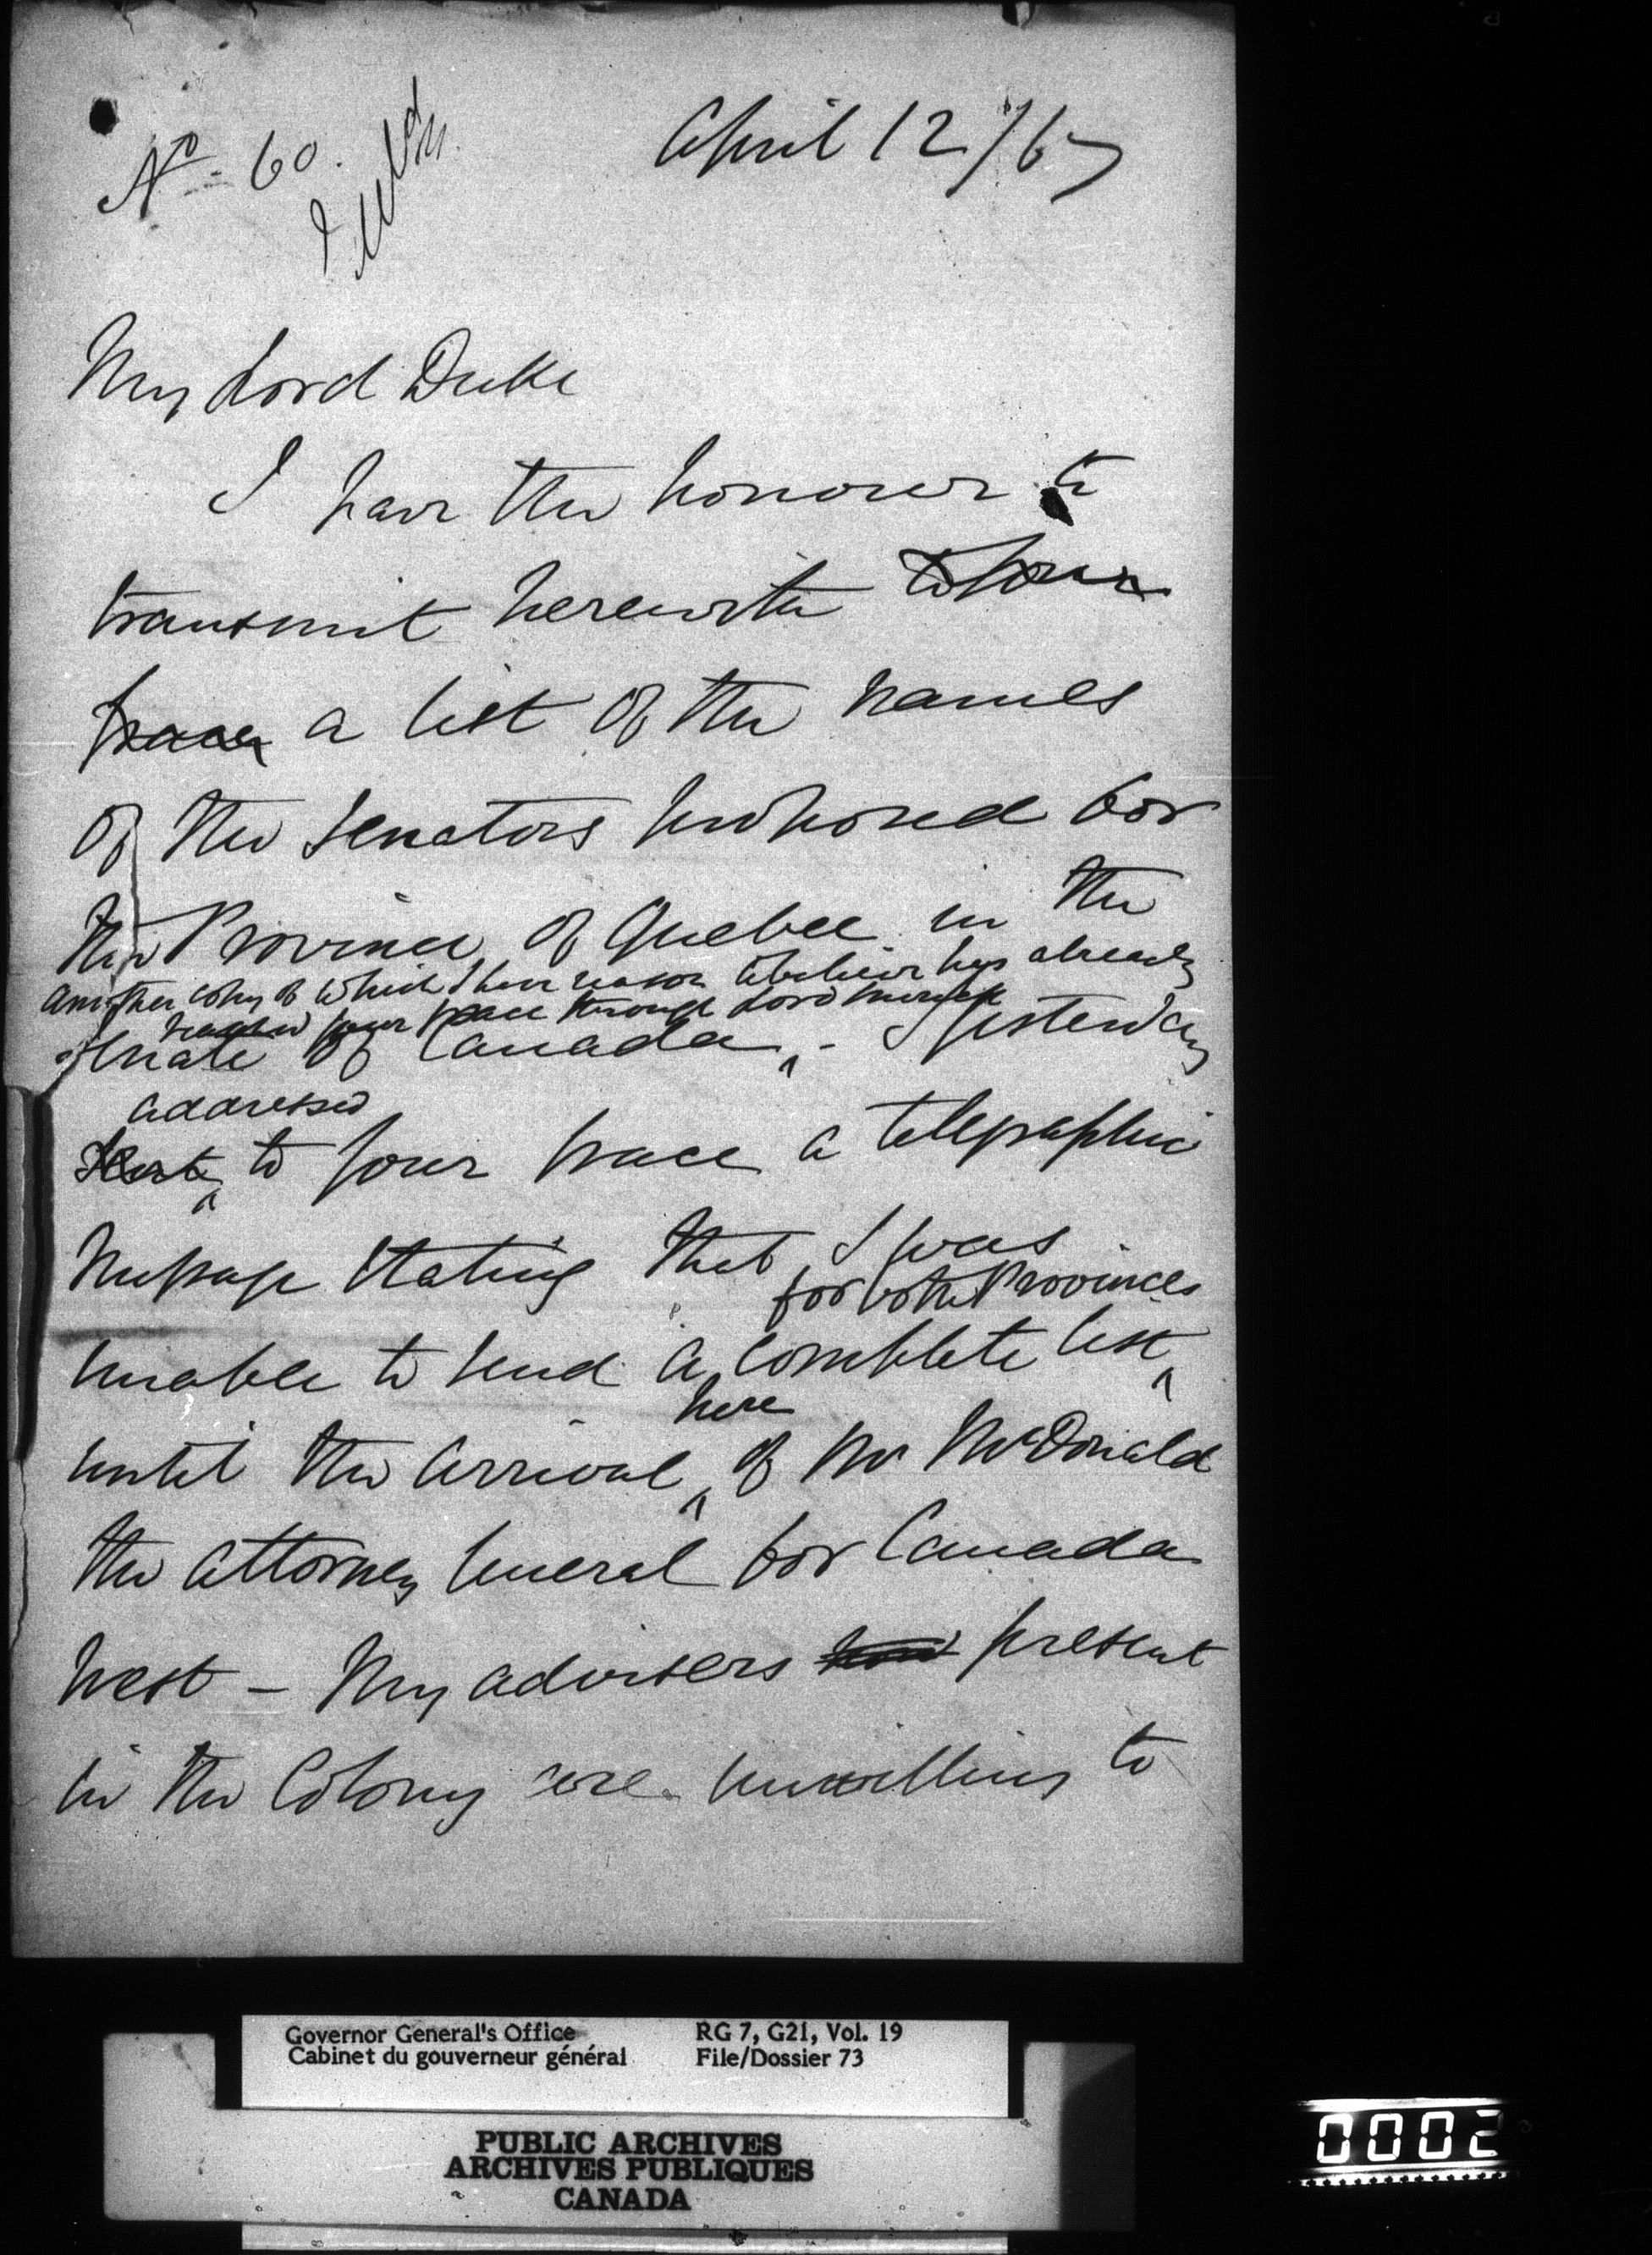 No. 60.
April 12/67
My Lord Duke
I have the honour to
transmit herewith to your
Grace a list of the names
of the Senators proposed for
the Province of Quebec in the
another copy of which I have reason to believe has already
reached your Grace through Lord Monck
Senate of Canada - I yesterday
addressed
sent to Your Grace a telegraphic
message stating that I was
for both Provinces
unable to send a complete list
here
until the arrival of Mr McDonald
the Attorney General for Canada
West - My advisers now present
in the Colony are unwilling to
Governor General's Office
Cabinet du gouverneur général
RG 7, G21, Vol. 19
File/Dossier 73
PUBLIC ARCHIVES
ARCHIVES PUBLIQUES
CANADA
0002